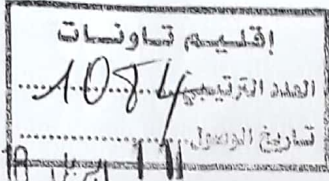 إقليم تاونات
العدد الترتيبي 1084
تاريخ الوصول